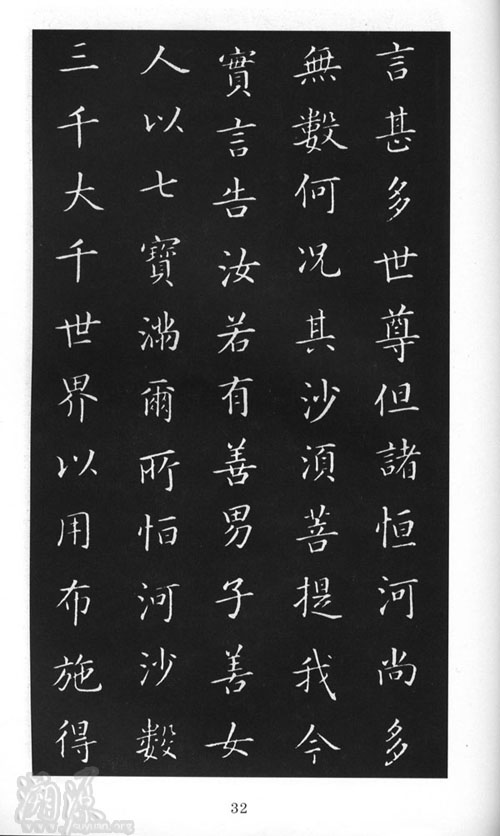 言甚多世尊但諸恒河尚多
無數何況其沙須菩提我今
實言告汝若有善男子善女
人以七寶滿爾所恒河沙數
三千大千世界以用布施得
32